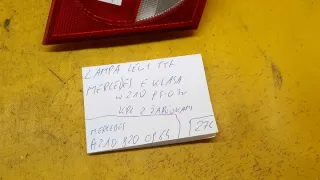 LAMPA LEWY TYŁ
MERCEDES E KLASA
W210 95-03r
KPL Z ŻARÓWKAMI
MERCEDES
A210 820 0164
276